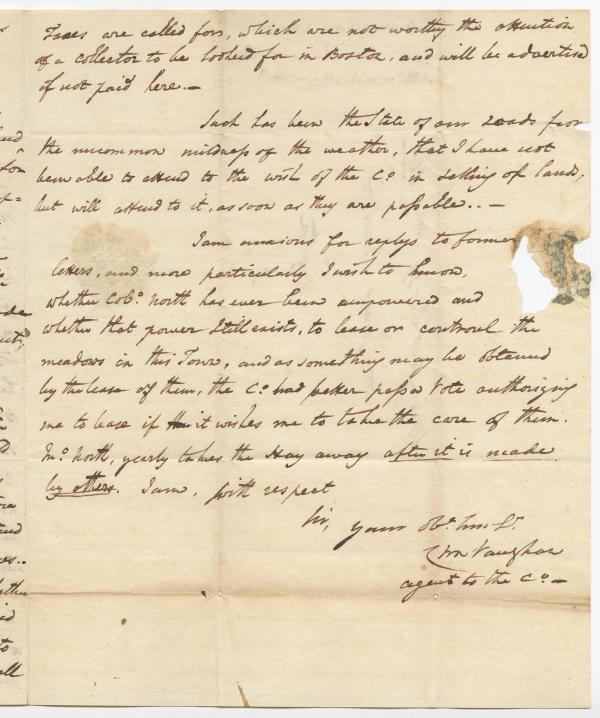 Taxes are called for, which are not worthy the attention
of a collector to be looked for in Boston, and will be advertised
if not paid here.—
Such has been the State of our Roads from
the uncommon mildness of the weather, that I have not
been able to attend to the wish of the Co. in selling of land,
but will attend to it, as soon as they are passable..—
I am anxious for replys to former
letters, and more particularly I wish to know,
whether Colo. North has ever been empowered and
whether that power Still exists, to lease or controul the
meadows in this Town, and as something may be obtained
by the lease of them, the Co. had better pass a Vote authorizing
me to lease if it wishes me to take the care of them.
Mr. North, yearly takes the Hay away after it is made
by others. I am, with respect
Sir,
Your Obt. hm St.
Vaughan
agent to the Co.—